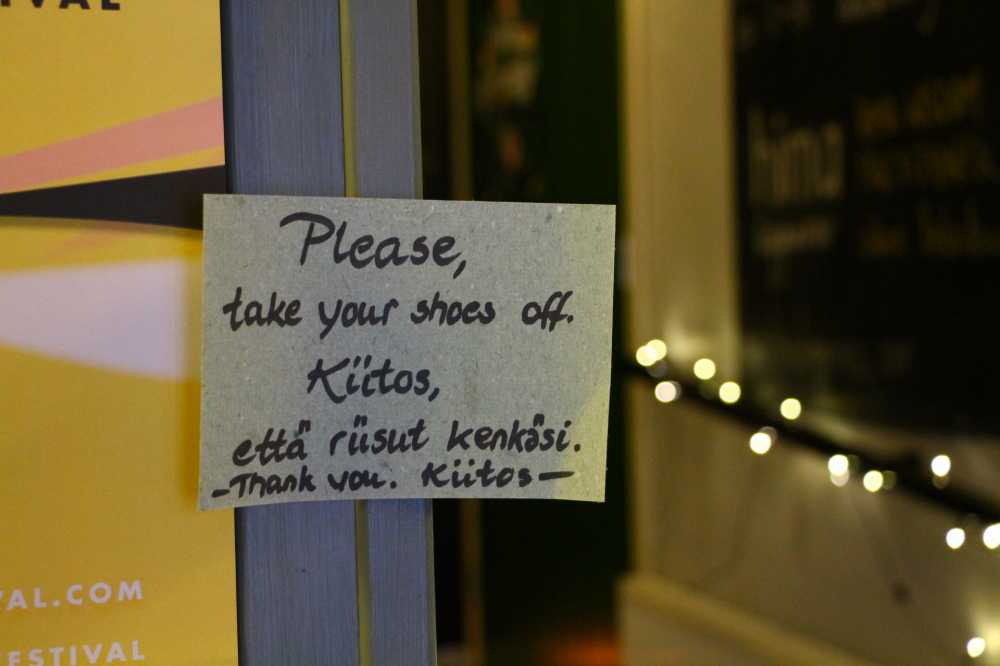 Please,
take your shoes off.
Kiitos,
että riisut kenkäsi.
-Thank you. Kiitos-
VAL
AL.COM
ESTIVAL
hima